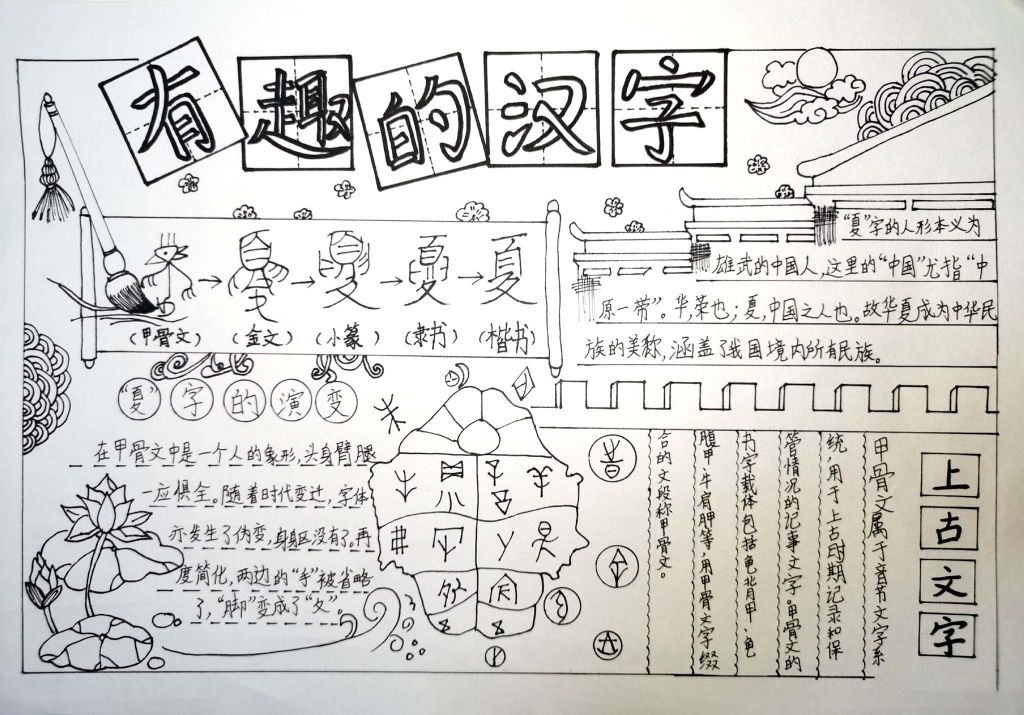 有趣的汉字
(甲骨文) (金文) (小篆) (隶书) (楷书)
"夏"字的演变
在甲骨文中是一个人的象形,头身臂腿
一应俱全。随着时代变迁,字体
亦发生了伪变,身躯没有了。再
度简化,两边的"手"被省略
了,"脚"变成了"夂"。
"夏"字的人形本义为
雄武的中国人,这里的"中国"尤指"中
原一带"。华,荣也;夏,中国之人也。故华夏成为中华民
族的美称,涵盖了我国境内所有民族。
上古文字
甲骨文属于音节文字系
统,用于上古时期记录和保
管情况的记事文字。甲骨文的
书字载体包括龟背甲、龟
腹甲、牛肩胛等,用甲骨文字缀
合的文段称甲骨文。